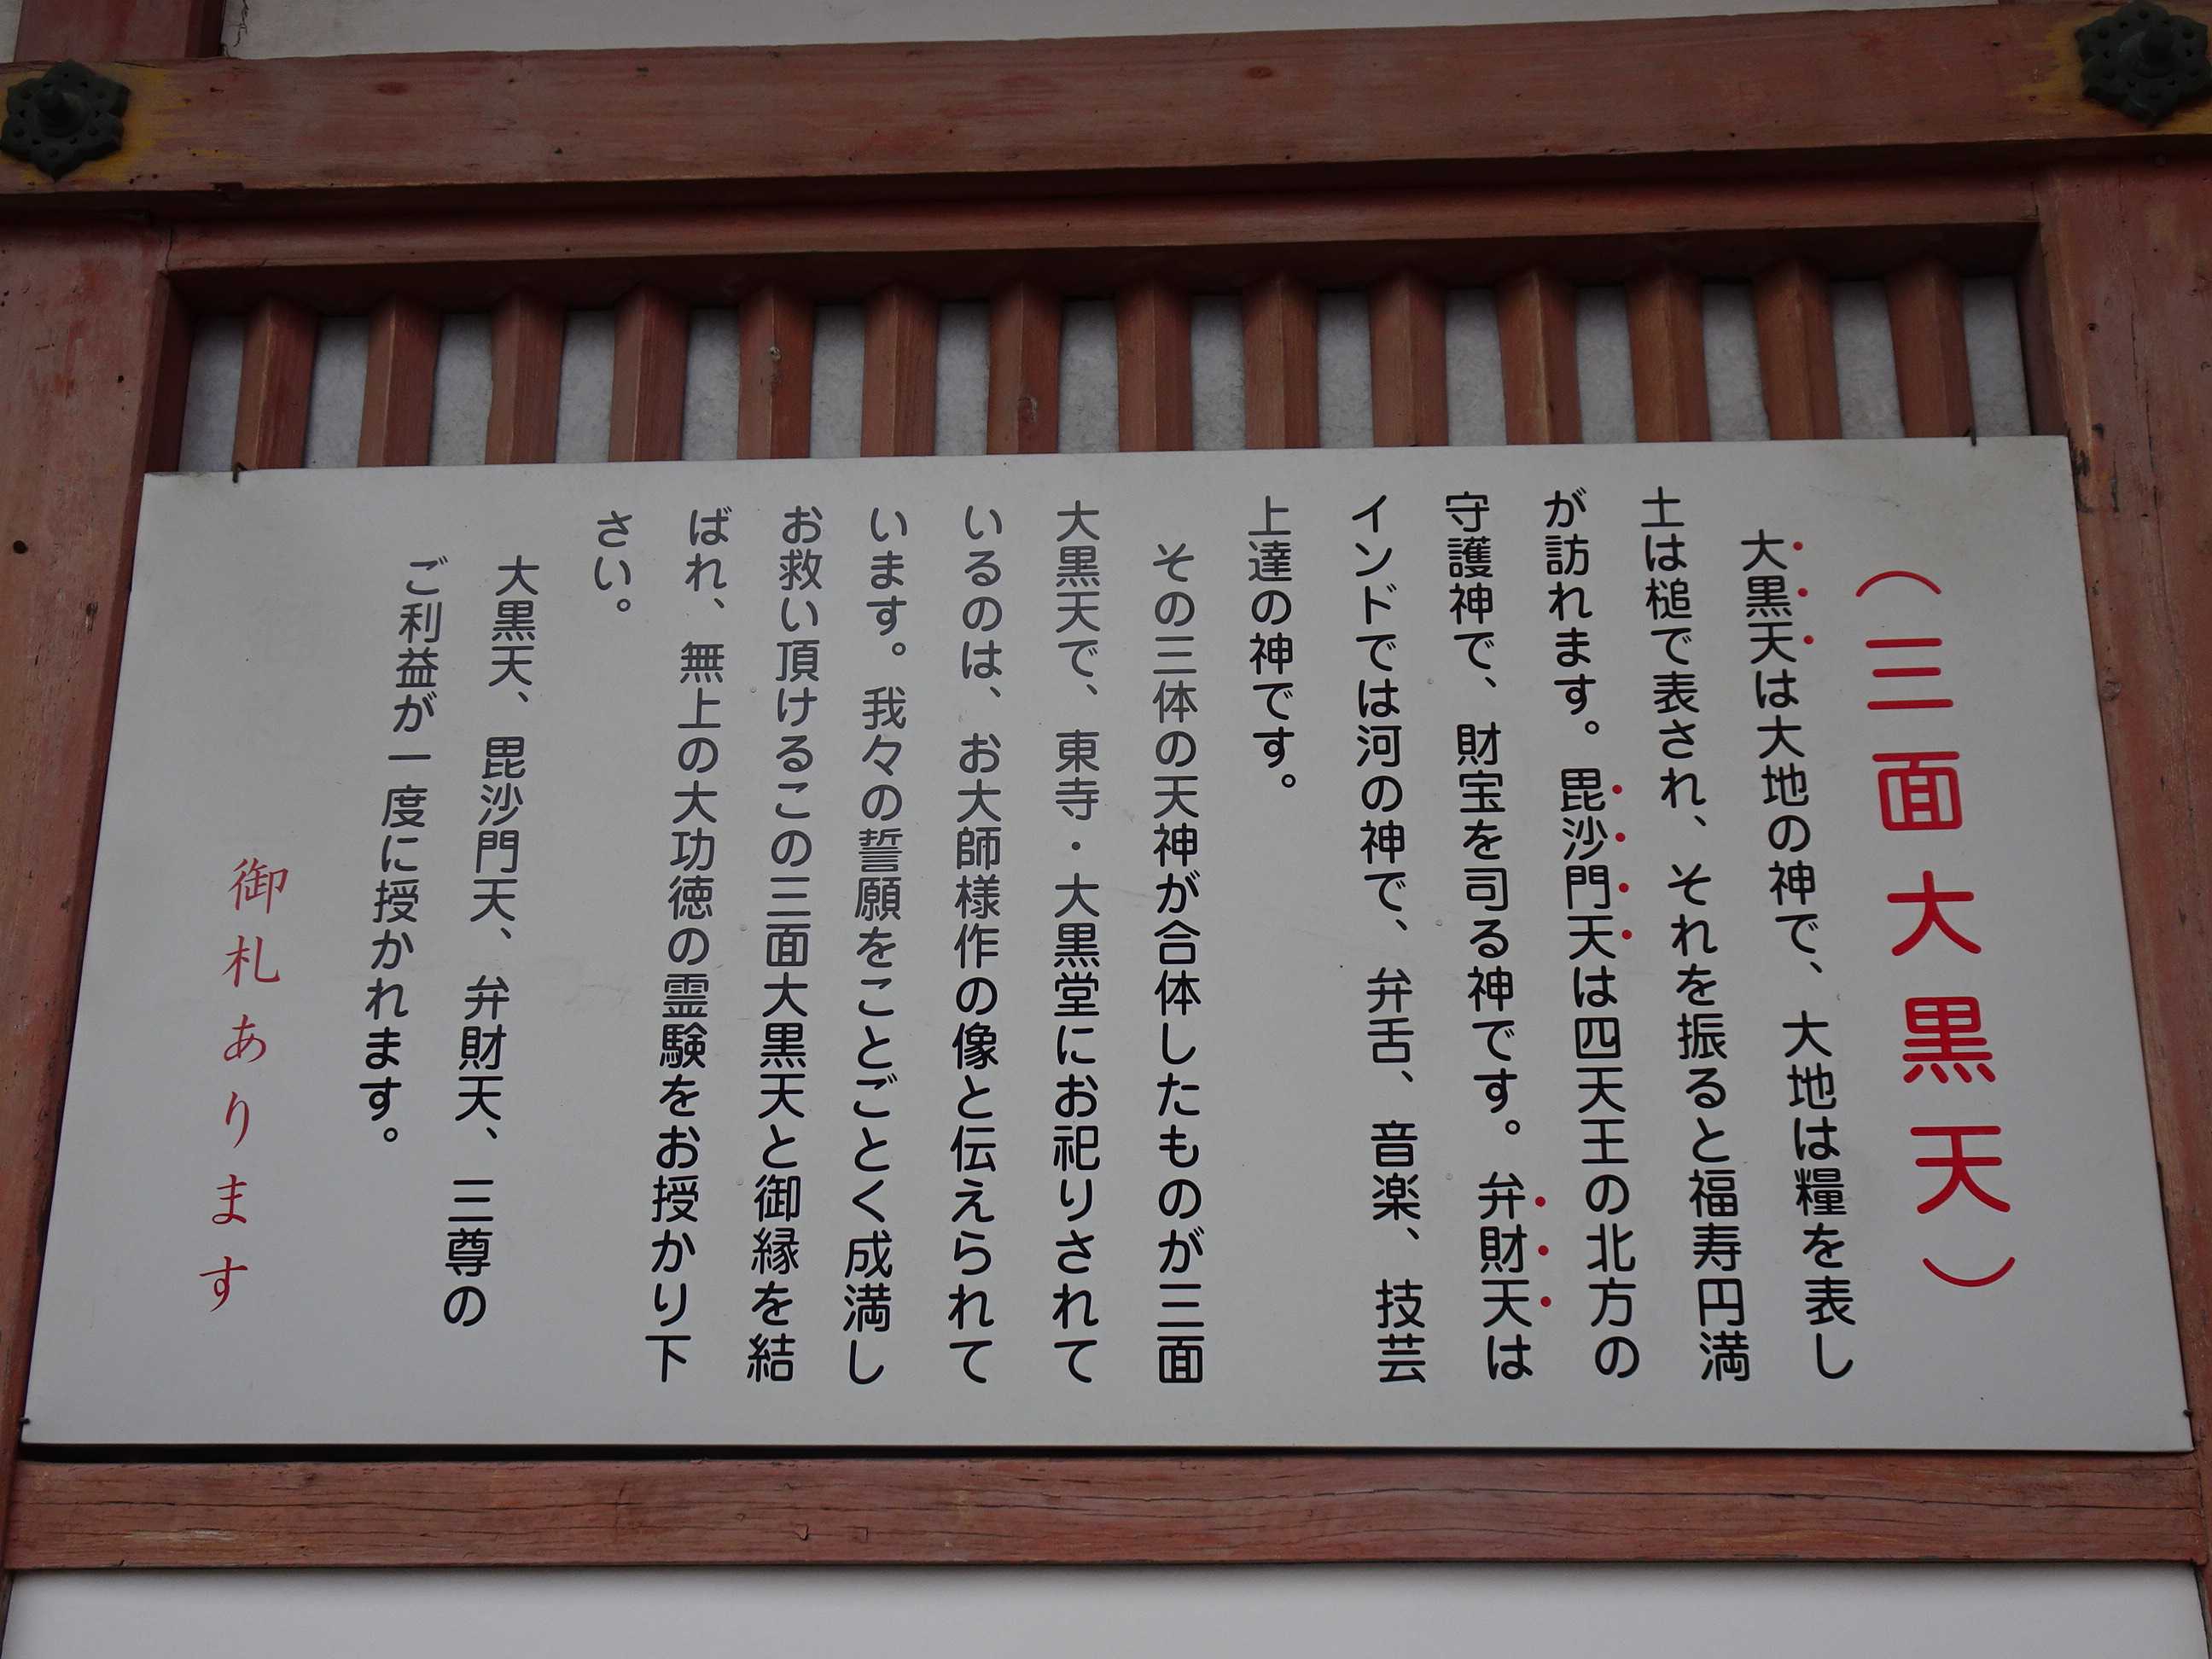 （三面大黒天）
大黒天は大地の神で、大地は糧を表し
土は槌で表され、それを振ると福寿円満
が訪れます。毘沙門天は四天王の北方の
守護神で、財宝を司る神です。弁財天は
インドでは河の神で、弁舌、音楽、技芸
上達の神です。
その三体の天神が合体したものが三面
大黒天で、東寺・大黒堂にお祀りされて
いるのは、お大師様作の像と伝えられて
います。我々の誓願をことごとく成満し
お救い頂けるこの三面大黒天と御縁を結
ばれ、無上の大功徳の霊験をお授かり下
さい。
大黒天、毘沙門天、弁財天、三尊の
ご利益が一度に授かれます。
御札あります